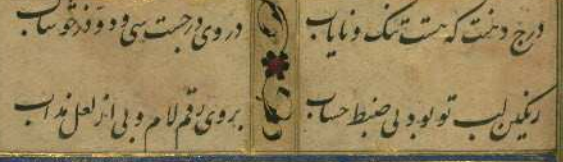 درج دهنت که هست تنک و نایاب
در وی درجست سی و دو در خوشاب
رنکین لب تو بود پی ضبط حساب
بر وی رقم لام و بی از لعل مذاب